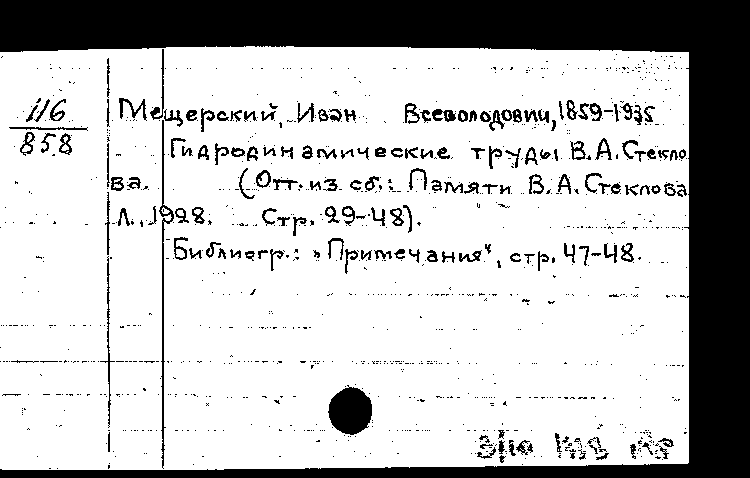 116
858
Мещерский, Иван Всеволодович, 1859-1935
Гидродинамические труды В.А.Стекло
ва. (Отт. из сб.: Памяти В.А.Стеклова
Л., 1928. Стр. 29-48).
Библиогр.: „Примечания", стр. 47-48.